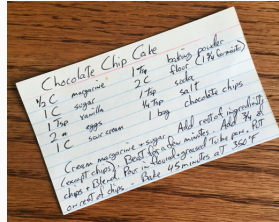 Chocolate Chip Cake
½ C margarine
1 C sugar
1 Tsp vanilla
2 eggs
1 C sour cream
1 Tsp baking powder
2 C flour
1 Tsp soda
¼ Tsp salt
1 bag chocolate chips
Cream margarine + sugar. Add rest of ingredients
(except chips). Beat for a few minutes. Add ¾ of
chips + Blend. Pour in floured + greased Tube pan. Put
on rest of chips - Bake 45 minutes at 350°F